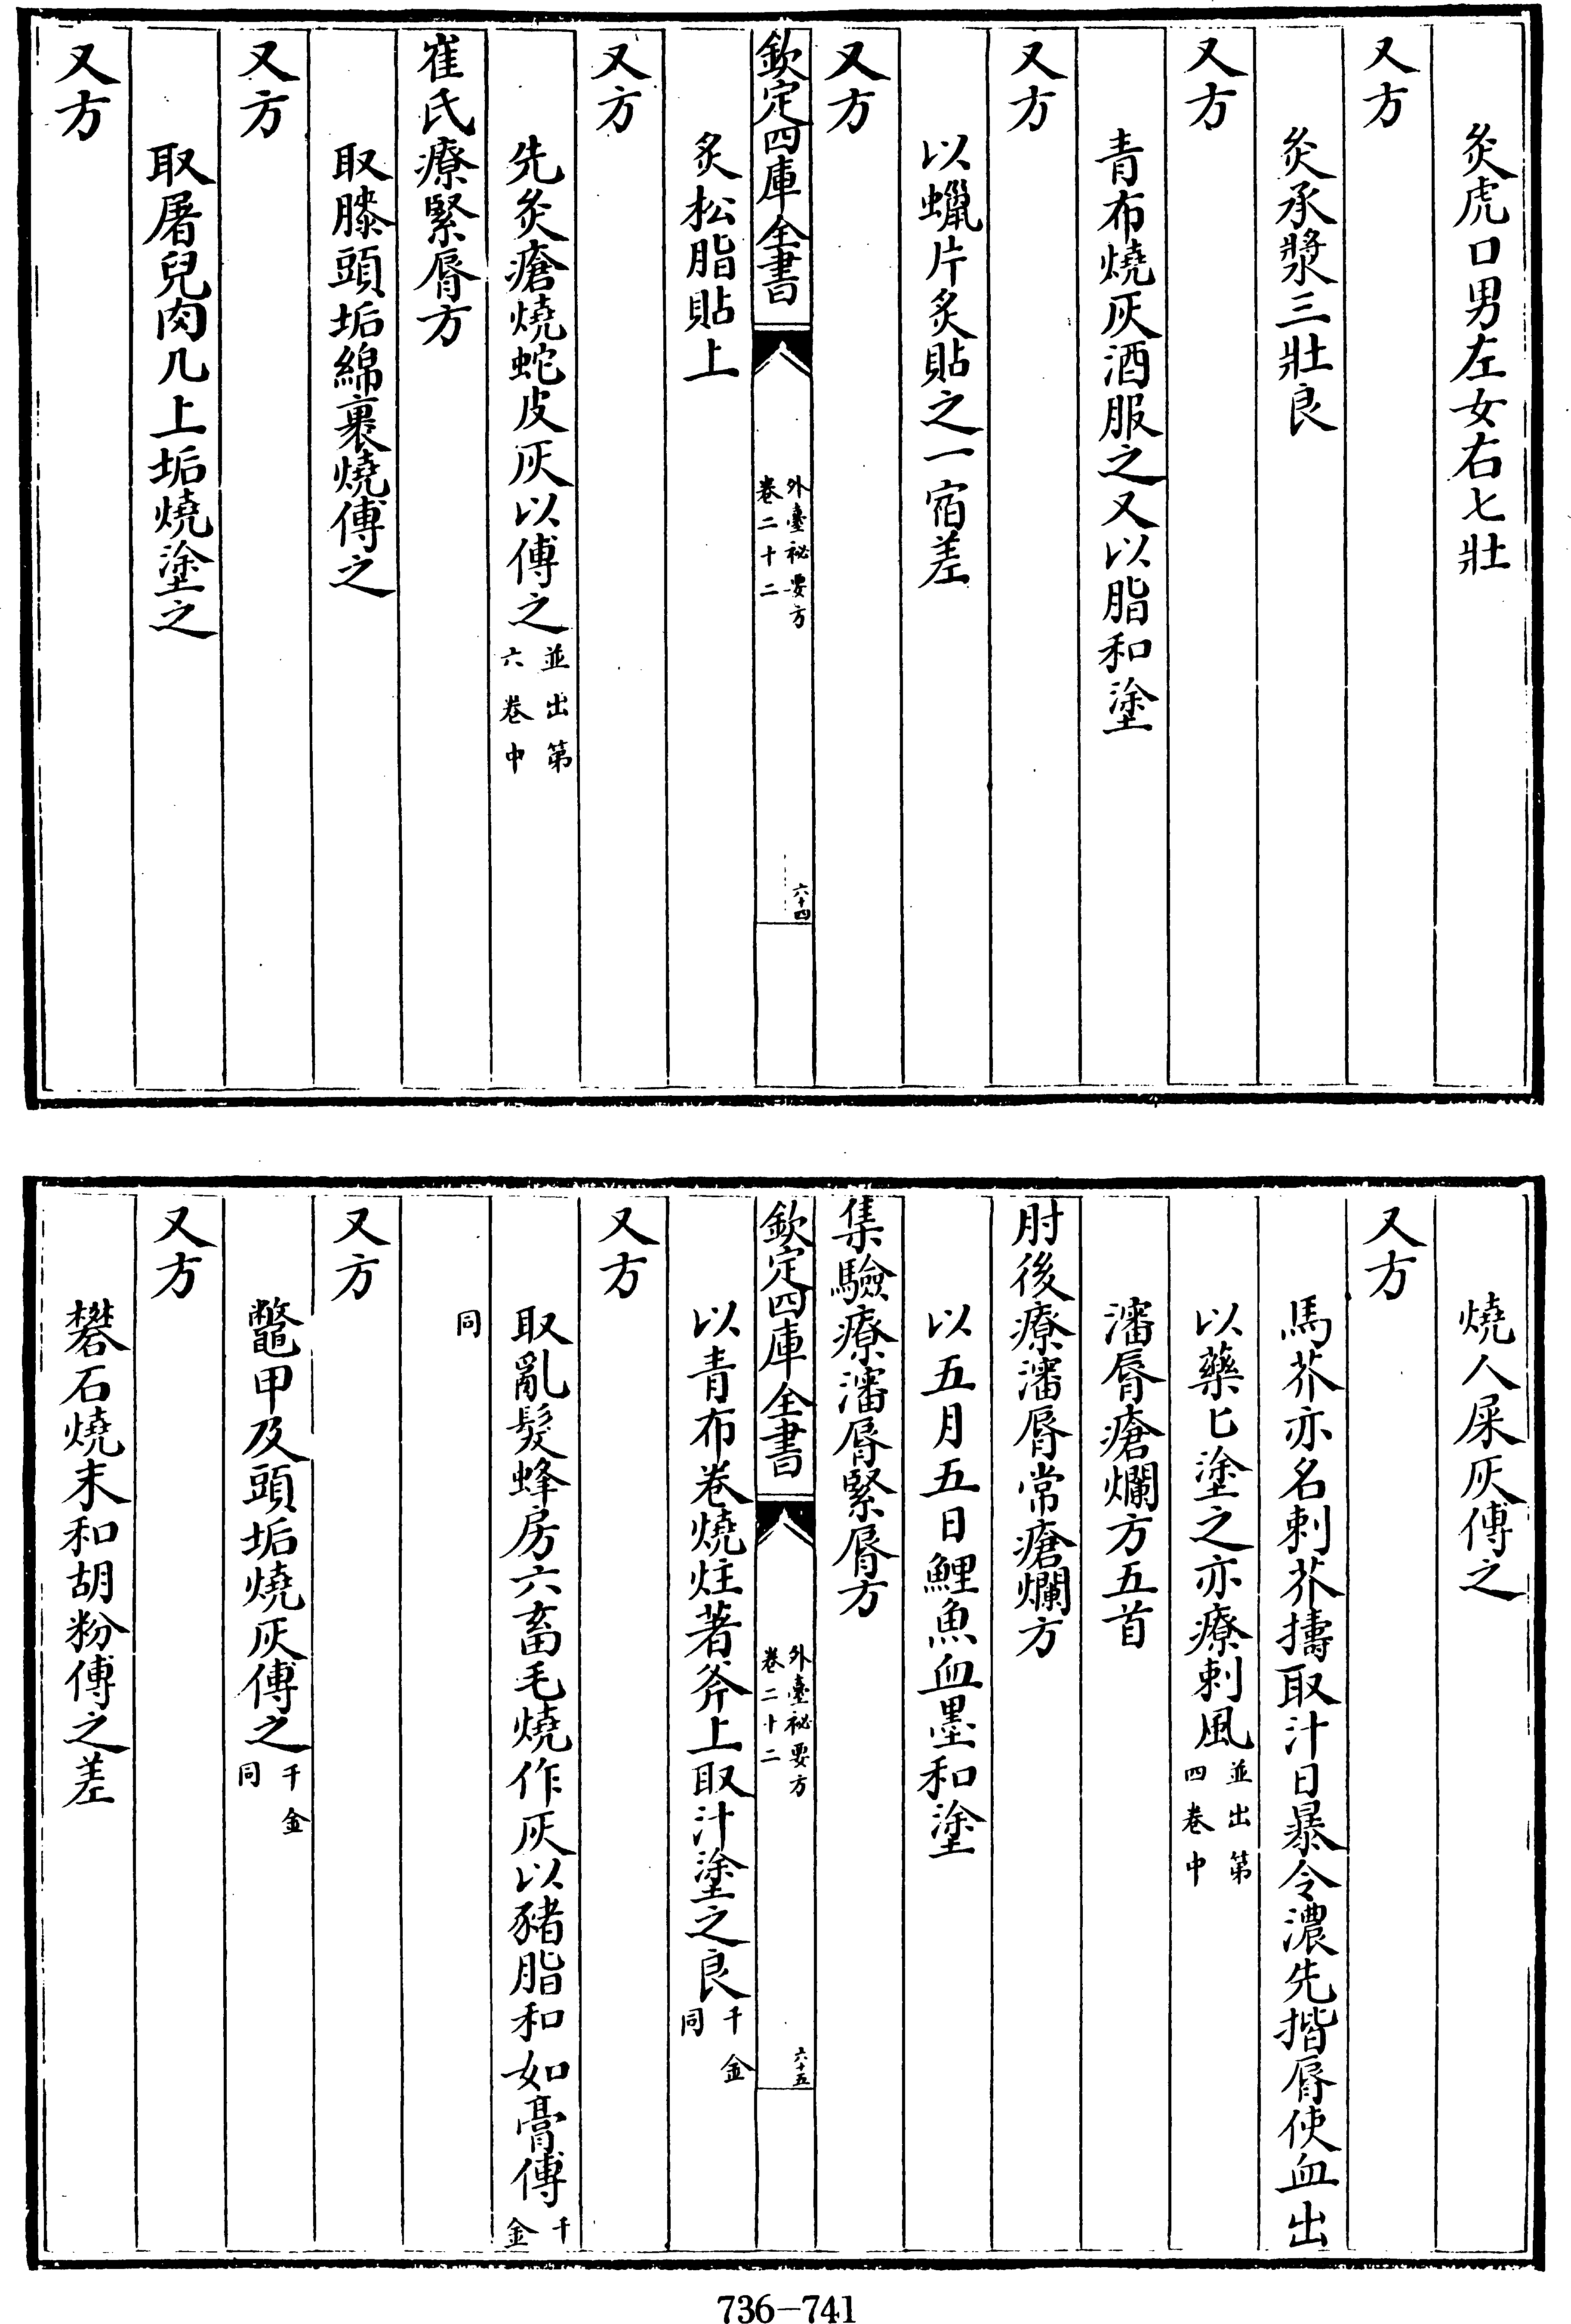 灸虎口男左女右七壯
又方
灸承漿三壯良
又方
青布燒灰酒服之又以脂和塗
又方
以蠟片炙貼之一宿差
又方
欽定四庫全書
外臺祕要方
卷二十二
六十四
炙松脂貼上
又方
先灸瘡燒蛇皮灰以傅之並出第六卷中
崔氏療緊脣方
取膝頭垢綿裹燒傅之
又方
取屠兒肉几上垢燒塗之
又方
燒人屎灰傅之
又方
馬芥亦名刺芥擣取汁日暴令濃先揩脣使血出
以藥匕塗之亦療刺風並出第四卷中
瀋脣瘡爛方五首
肘後療瀋脣常瘡爛方
以五月五日鯉魚血墨和塗
集驗療瀋脣緊脣方
欽定四庫全書
外臺祕要方
卷二十二
六十五
以青布卷燒炷著斧上取汁塗之良千金同
又方
取亂髮蜂房六畜毛燒作灰以豬脂和如膏傅千金
同
又方
鼈甲及頭垢燒灰傅之千金同
又方
礬石燒末和胡粉傅之差
736-741